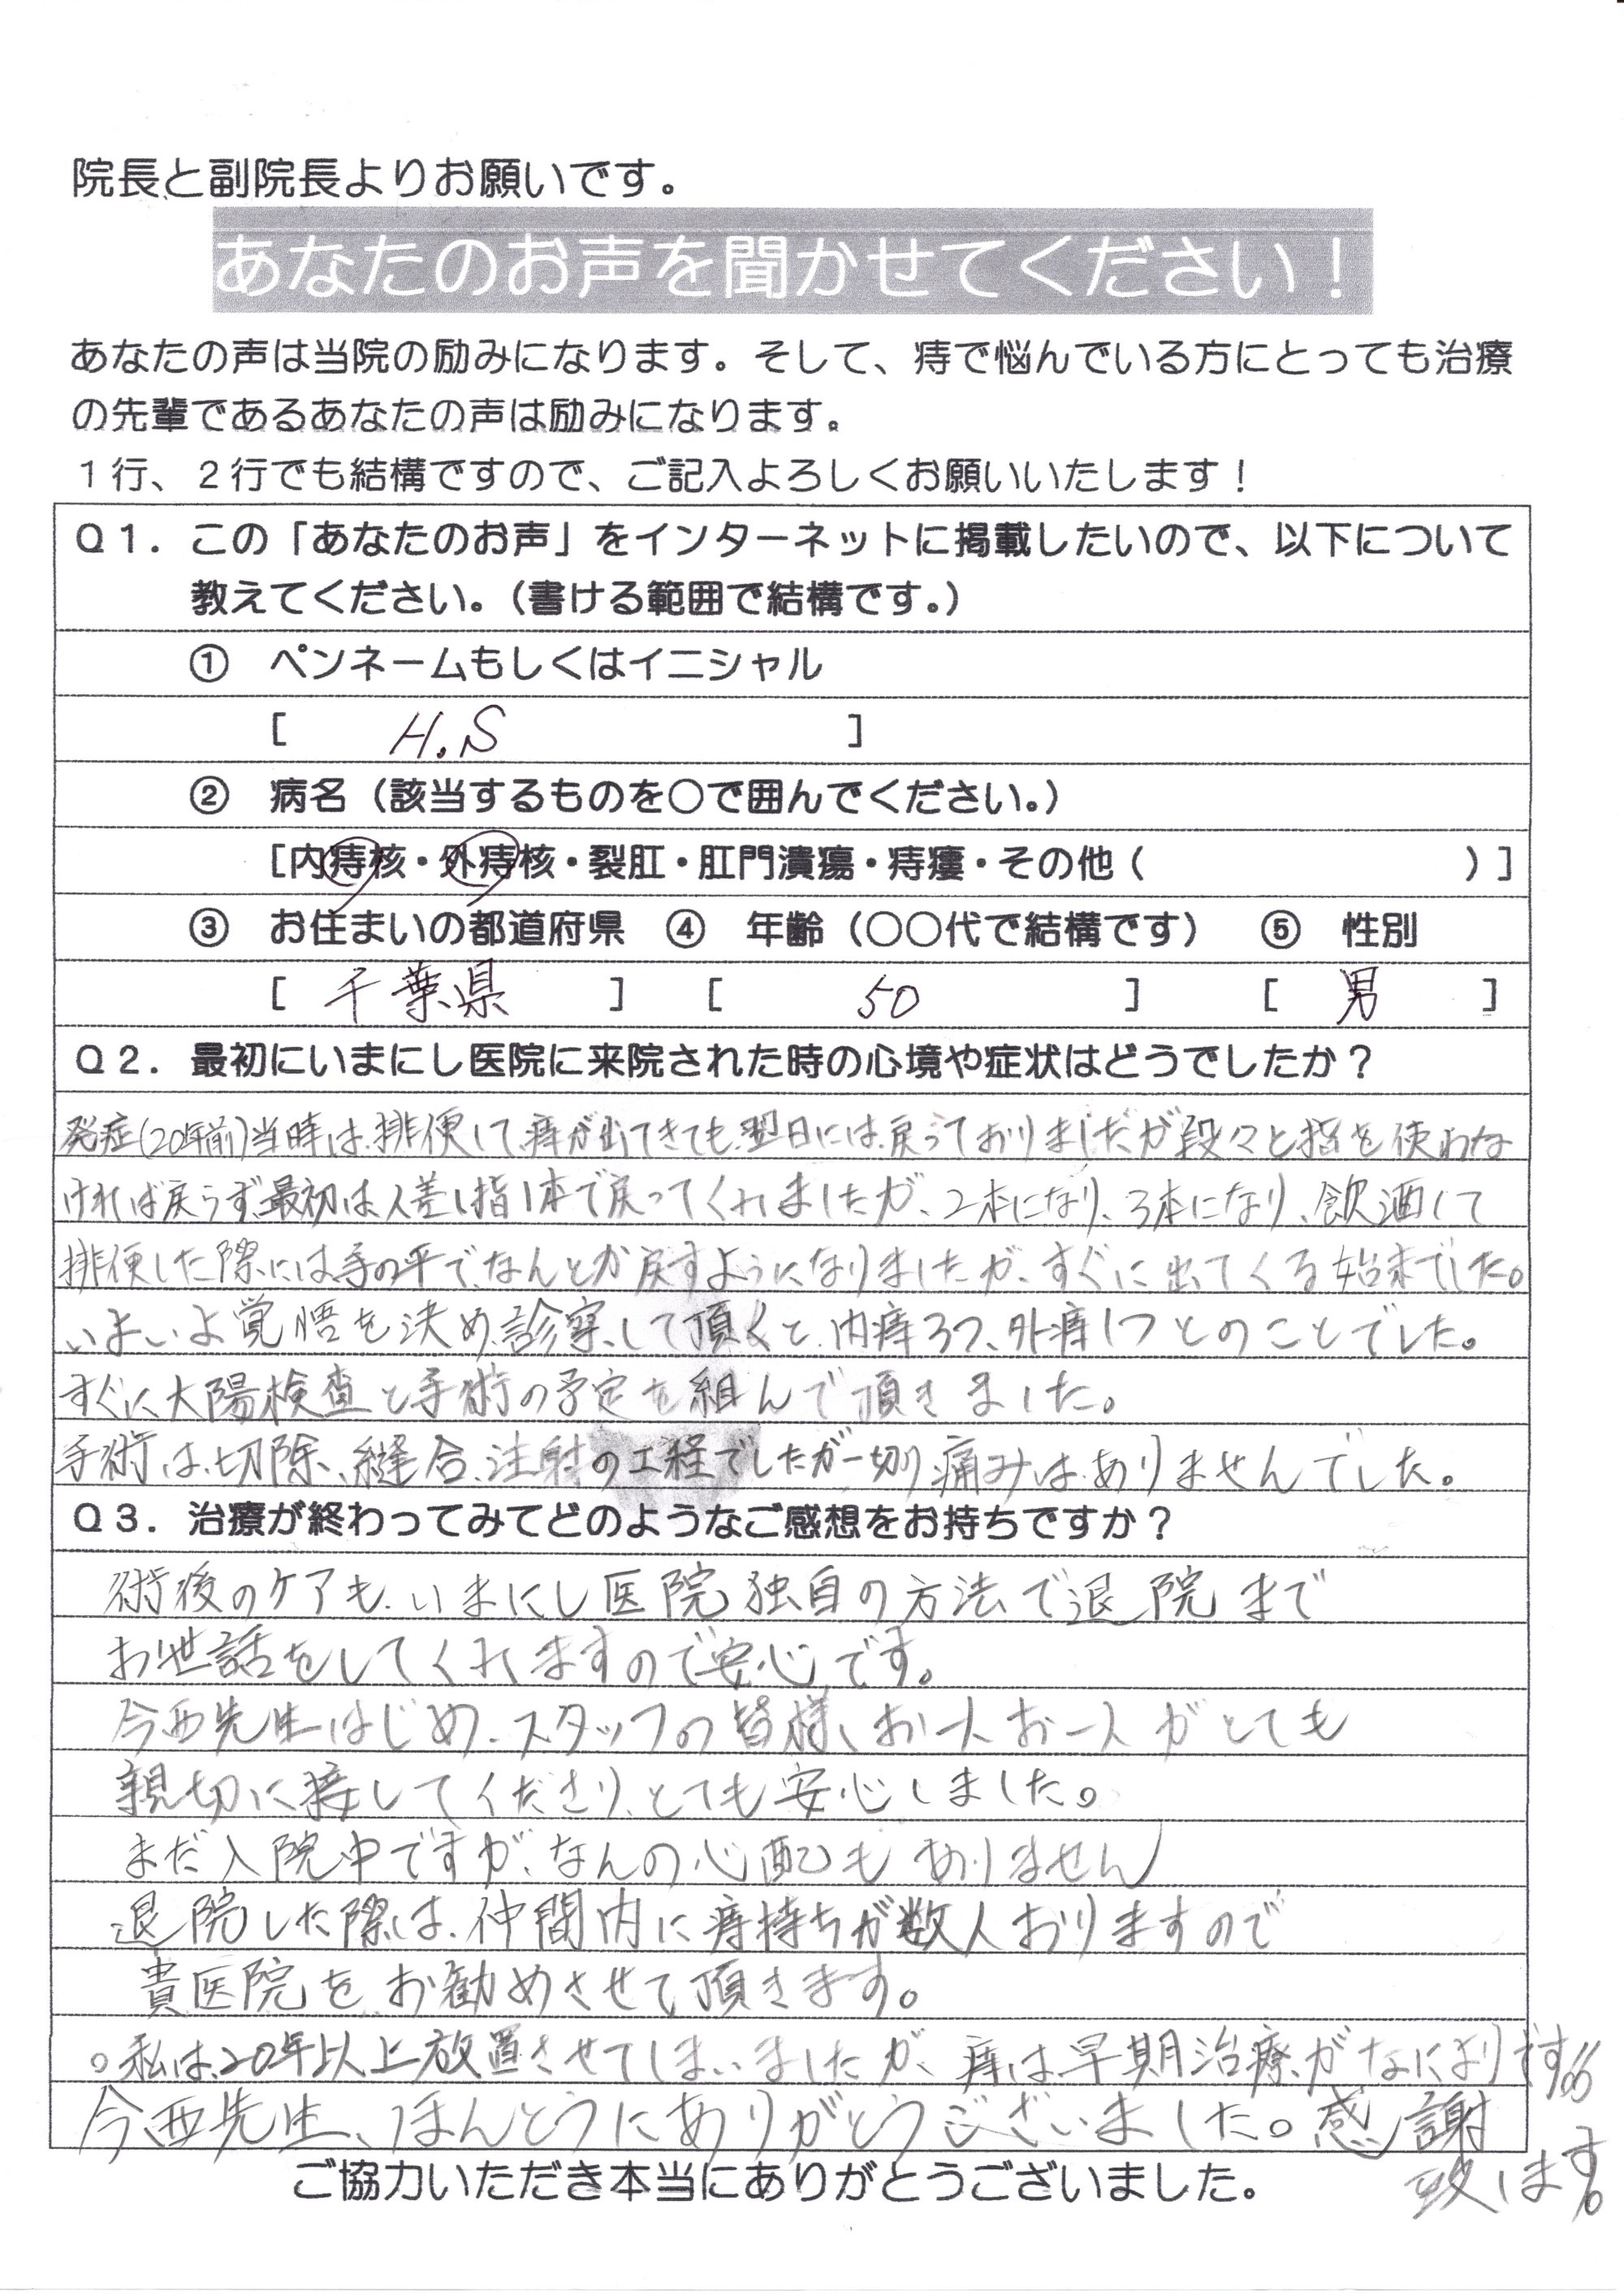 院長と副院長よりお願いです。
あなたのお声を聞かせてください！
あなたの声は当院の励みになります。そして、痔で悩んでいる方にとっても治療
の先輩であるあなたの声は励みになります。
１行、２行でも結構ですので、ご記入よろしくお願いいたします！
Ｑ１．この「あなたのお声」をインターネットに掲載したいので、以下について
教えてください。（書ける範囲で結構です。）
① ペンネームもしくはイニシャル
[ H.S ]
② 病名（該当するものを○で囲んでください。）
[内痔核・外痔核・裂肛・肛門潰瘍・痔瘻・その他（ ）]
③ お住まいの都道府県 ④ 年齢（○○代で結構です） ⑤ 性別
[ 千葉県 ] [ 50 ] [ 男 ]
Ｑ２．最初にいまにし医院に来院された時の心境や症状はどうでしたか？
発症(20年前)当時は、排便して痔が出てきても翌日には戻っておりましたが段々と指を使わな
ければ戻らず、最初は人差し指1本で戻ってくれましたが、2本になり、3本になり、飲酒して
排便した際には手の平で、なんとか戻すようになりましたが、すぐに出てくる始末でした。
いよいよ覚悟を決め、診察して頂くと、内痔3つ、外痔1つとのことでした。
すぐに大腸検査と手術の予定を組んで頂きました。
手術は、切除、縫合、注射の工程でしたが一切り痛みはありませんでした。
Ｑ３．治療が終わってみてどのようなご感想をお持ちですか？
術後のケアも、いまにし医院独自の方法で退院まで
お世話をしてくれますので安心です。
今西先生はじめ、スタッフの皆様、お一人お一人がとても
親切に接してくださり、とても安心しました。
まだ入院中ですが、なんの心配もありません
退院した際は、仲間内に痔持ちが数人おりますので
貴医院をお勧めさせて頂きます。
。私は、20年以上放置させてしまいましたが、痔は早期治療がなによりです!!
今西先生、ほんとうにありがとうございました。感謝
致します。
ご協力いただき本当にありがとうございました。